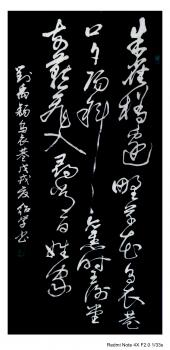 朱雀橋邊野草花烏衣巷
口夕陽斜舊時王謝堂
前燕飛入尋常百姓家
劉禹錫烏衣巷戊戌夏
Redmi Note 4X F2.0 1/33s